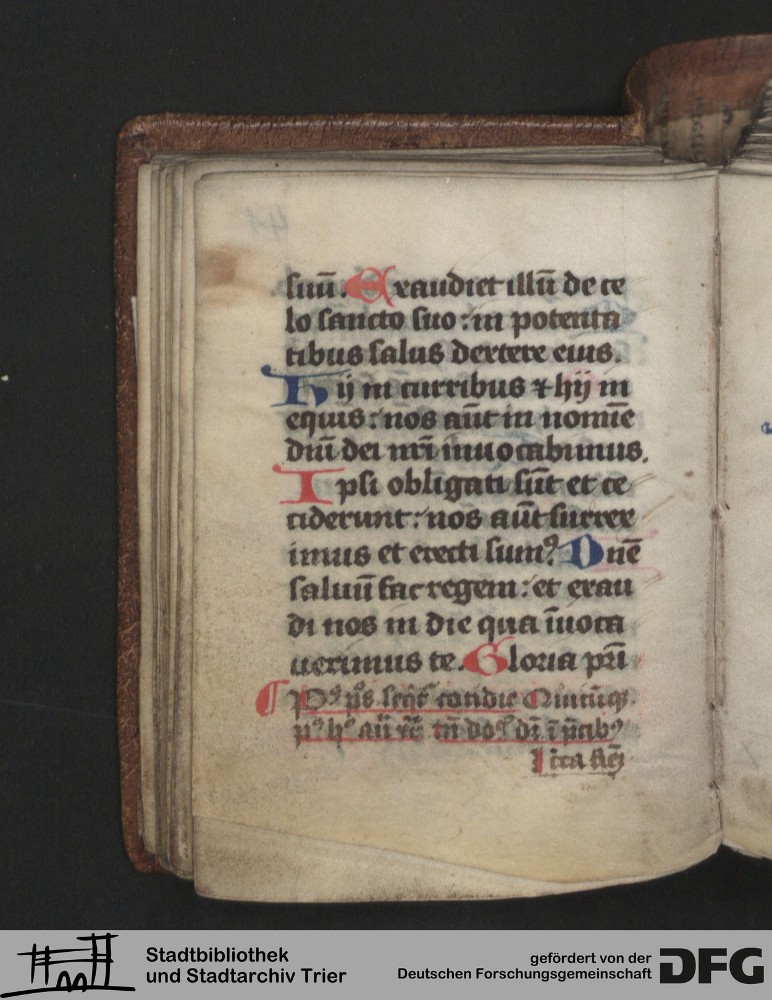 suū. Exaudiet illū de ce
lo sancto suo: in potenta
tibus salus dextere eius.
Hij in curribus ⁊ hij in
equis: nos aūt in nomīe
dn̄i dei nr̄i inuocabimus.
Ipsi obligati sūt et ce
ciderunt: nos aūt surrex
imus et erecti sumꝰ. Dn̄e
saluū fac regem: et exau
di nos in die qua īuoca
uerimus te. Gloria pr̄i
cotidie
Stadtbibliothek
und Stadtarchiv Trier
gefördert von der
Deutschen Forschungsgemeinschaft
DFG